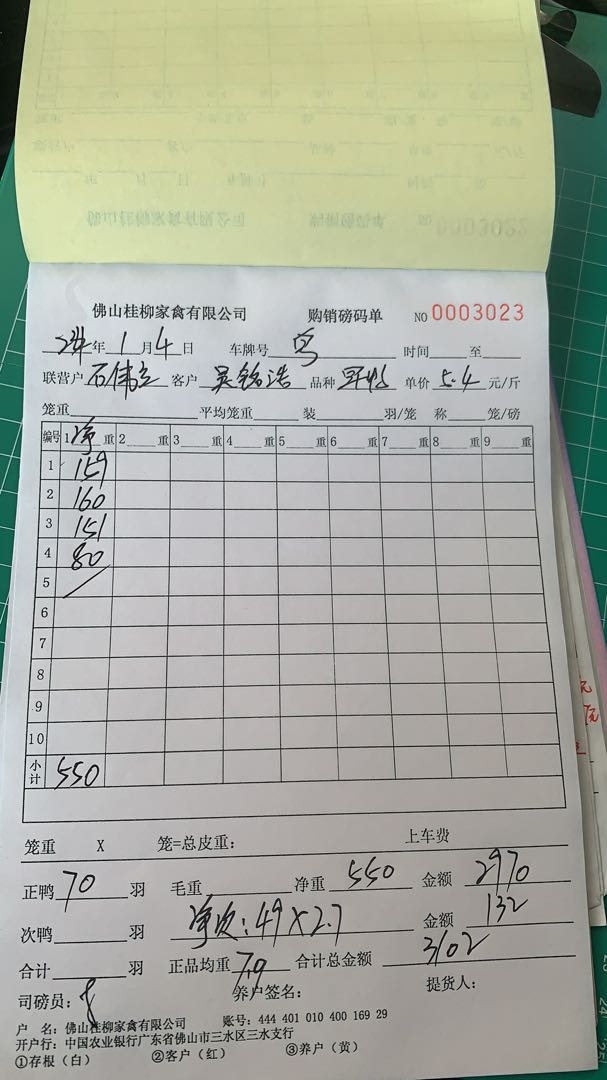 佛山桂柳家禽有限公司 购销磅码单 NO 0003023
年 1 月 4 日 车牌号 时间 至
联营户 石伟立 客户 吴铭浩 品种 单价 5.4 元/斤
笼重 平均笼重 装 羽/笼 称 笼/磅
编号 1 净 重 2 重 3 重 4 重 5 重 6 重 7 重 8 重 9 重
1 159
2 160
3 151
4 80
5
6
7
8
9
10
小计 550
笼重 X 笼=总皮重: 上车费
正鸭 70 羽 毛重 净重 550 金额 2970
次鸭 羽 净次:49×2.7 金额 132
合计 羽 正品均重 7.9 合计总金额 3102
司磅员: 养户签名: 提货人:
户 名: 佛山桂柳家禽有限公司 账号: 444 401 010 400 169 29
开户行: 中国农业银行广东省佛山市三水区三水支行
①存根(白) ②客户(红) ③养户(黄)